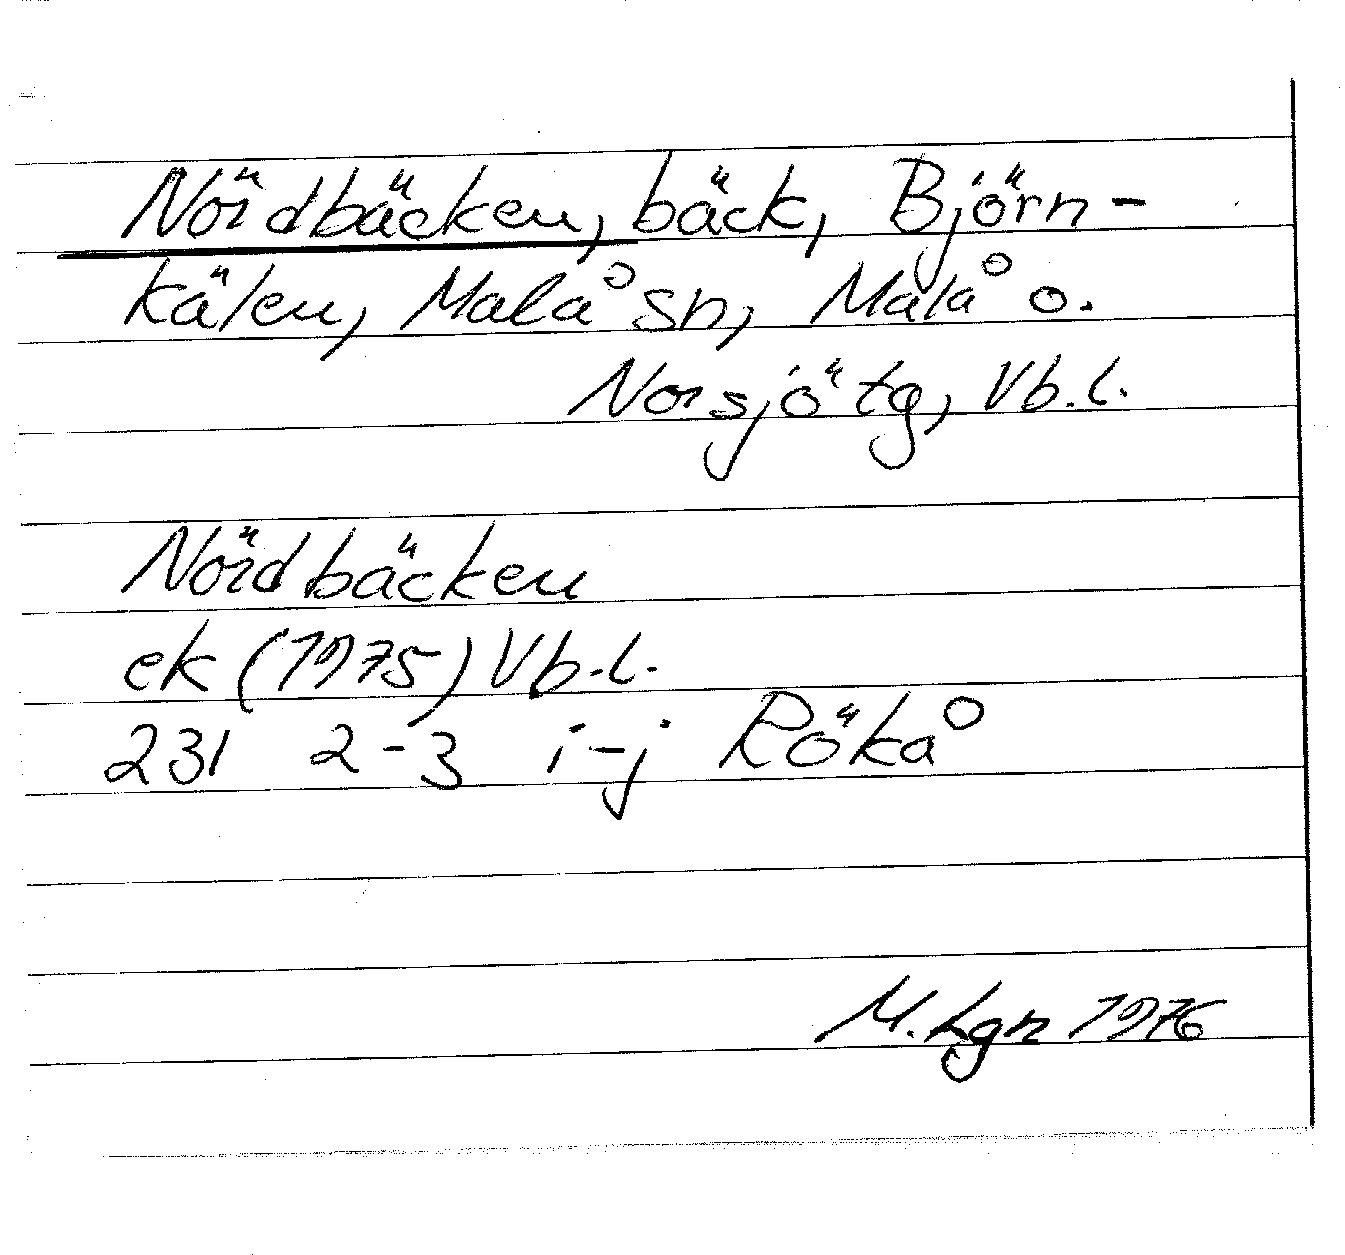 Nördbäcken, bäck, Björn-
kälen, Malå sn, Malå o.
Norsjö tg, Vb.l.
Nördbäcken
ek (1975) Vb.l.
231 2-3 i-j Rökå
M. Lgn 1976